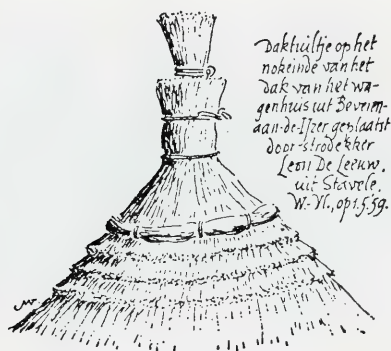 Daktuiltje op het
nokeinde van het
dak van het wa-
genhuis uit Beveren-
aan-de-IJzer geplaatst
door strodekker
Leon De Leeuw.
uit Stavele.
W.-Vl., op 1.5.59.